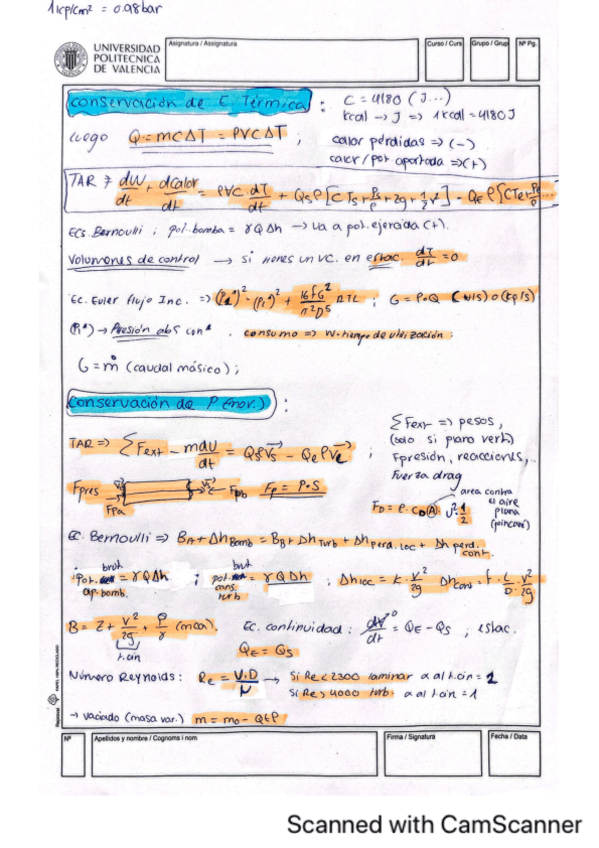 1 kp/cm² = 0.98 bar
UNIVERSIDAD
POLITECNICA
DE VALENCIA
Asignatura / Assignatura
Curso / Curs
Grupo / Grup
Nº Pg.
Conservación de C. Térmica :
C = 4180 (J...)
kcal → J => 1 kcal = 4180 J
luego Q = mCΔT = ρVCΔT ;
calor pérdidas => (-)
calor/pot aportada => (+)
TAR → dW/dt + dcalor/dt = ρVC dT/dt + Qsρ[CTs + Ps/ρ + zg + 1/2 v²] - QEρ[CTe + Pe/ρ ...
Ecs. Bernoulli ; pot. bomba = γQΔh → va a pot. ejercida (+).
Volumenes de control → si tienes un VC. en estac. dT/dt = 0
Ec. Euler flujo Inc. =>
; G = ρ·Q
→ Presión abs
. consumo => W·tiempo de utilización.
G = ṁ (caudal másico) ;
Conservación de P (mov.) :
ΣFext => pesos,
(solo si plano vert.)
Fpresión, reacciones,..
Fuerza drag
TAR => ΣFext - mdu/dt = Qsρvs - Qeρve ;
Fpres
Fpa
Fpb
Fp = P·S
area contra
el aire
plana
FD = ρ·CD A · v² · 1/2
EC. Bernoulli => BA + ΔhBomb = BB + ΔhTurb + Δhperd. loc + Δh perd. cont.
brut
brut
pot. ap. bomb. = γQΔh ; pot. cons. turb = γQΔh ; Δhloc = k · v²/2g Δhcont = f · L/D · v²/2g
B = z + v²/2g + P/γ (mca).
h.cin
Ec. continuidad : dV/dt = QE - QS , estac.
QE = QS
Número Reynolds : Re = V·D/ν → Si Re < 2300 laminar α al h.cin = 2
Si Re > 4000 turb. α al h.cin = 1
→ vaciado (masa var.) m = m0 - Qtρ
Nº
Apellidos y nombre / Cognoms i nom
Firma / Signatura
Fecha / Data
Scanned with CamScanner